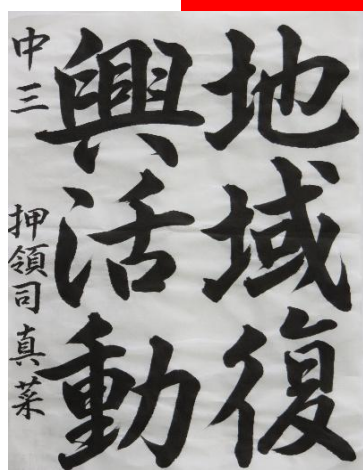 地域復
興活動
中三 押領司真菜